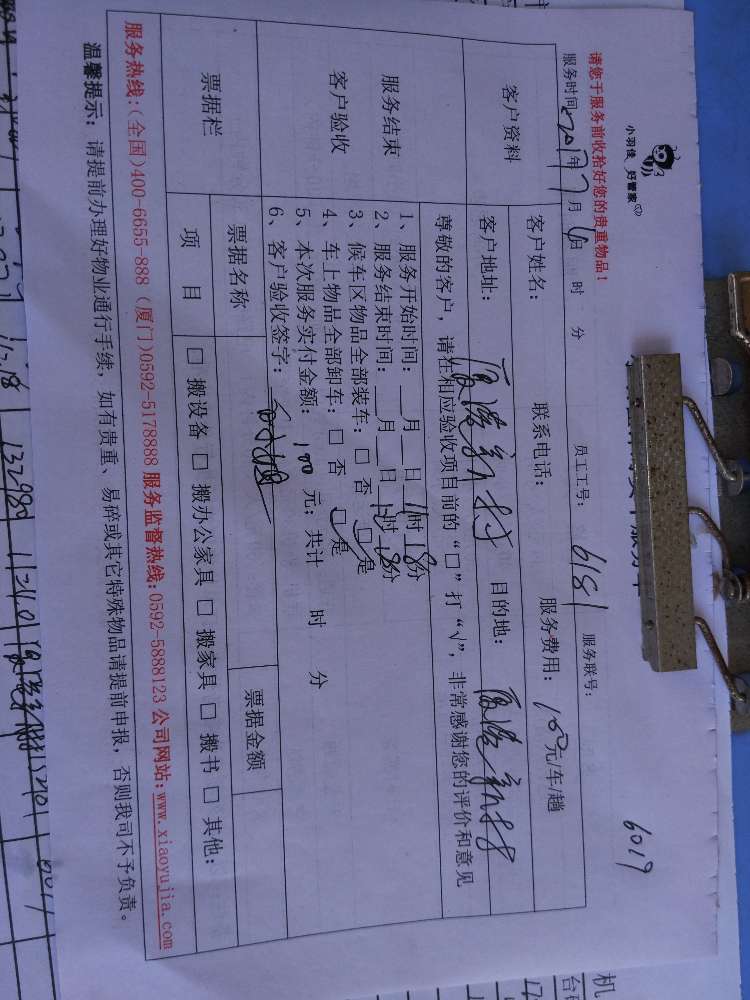 小羽佳 好管家
6019
请您于服务前收拾好您的贵重物品！
服务时间: 2017年7月4日 时 分 员工工号: 6181 服务联号:
客户资料
客户姓名: 联系电话: 服务费用: 100元/车/趟
客户地址: 目的地:
尊敬的客户，请在相应验收项目前的“□”打“√”，非常感谢您的评价和意见
服务结束
客户验收
1、服务开始时间: 月 日 11时18分
2、服务结束时间: 月 日 时 18分
3、候车区物品全部装车: □ 否 □ 是
4、车上物品全部卸车: □ 否 □ 是
5、本次服务实付金额: 100 元; 共计 时 分
6、客户验收签字:
票据栏
票据名称 票据金额
项 目 □ 搬设备 □ 搬办公家具 □ 搬家具 □ 搬书 □ 其他:
服务热线:(全国)400-6655-888 (厦门)0592-5178888 服务监督热线:0592-5888123 公司网站:www.xiaoyujia.com
温馨提示: 请提前办理好物业通行手续，如有贵重、易碎或其它特殊物品请提前申报，否则我司不予负责。